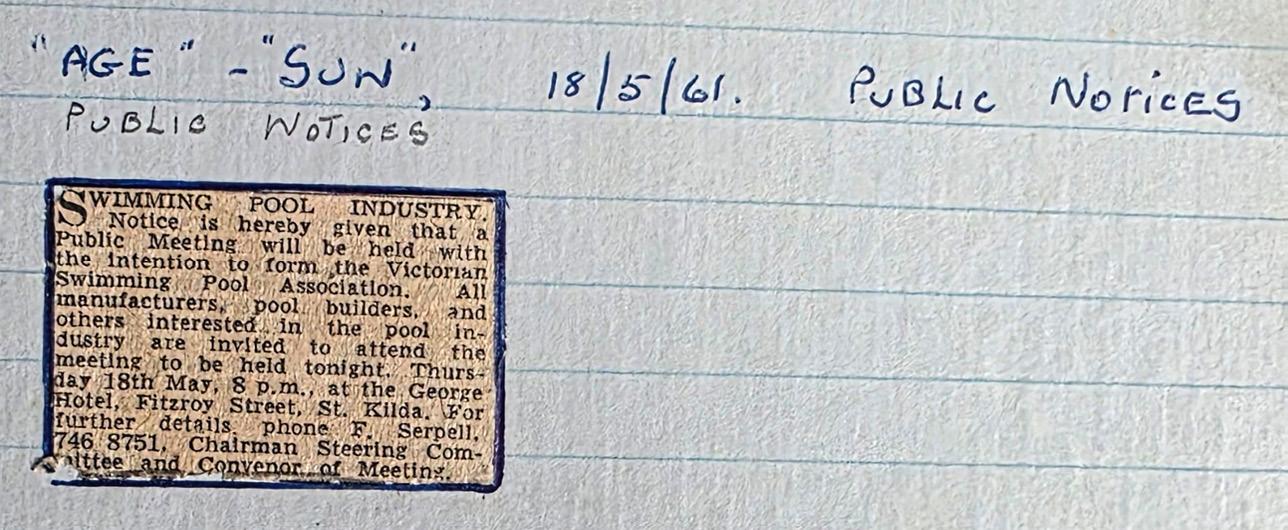 "AGE" - "SUN", 18/5/61. PUBLIC NOTICES
PUBLIC NOTICES
SWIMMING POOL INDUSTRY.
Notice is hereby given that a
Public Meeting will be held with
the intention to form the Victorian
Swimming Pool Association. All
manufacturers, pool builders, and
others interested in the pool in-
dustry are invited to attend the
meeting to be held tonight. Thurs-
day 18th May, 8 p.m., at the George
Hotel, Fitzroy Street, St. Kilda. For
further details phone F. Serpell,
746 8751, Chairman Steering Com-
mittee and Convenor of Meeting.